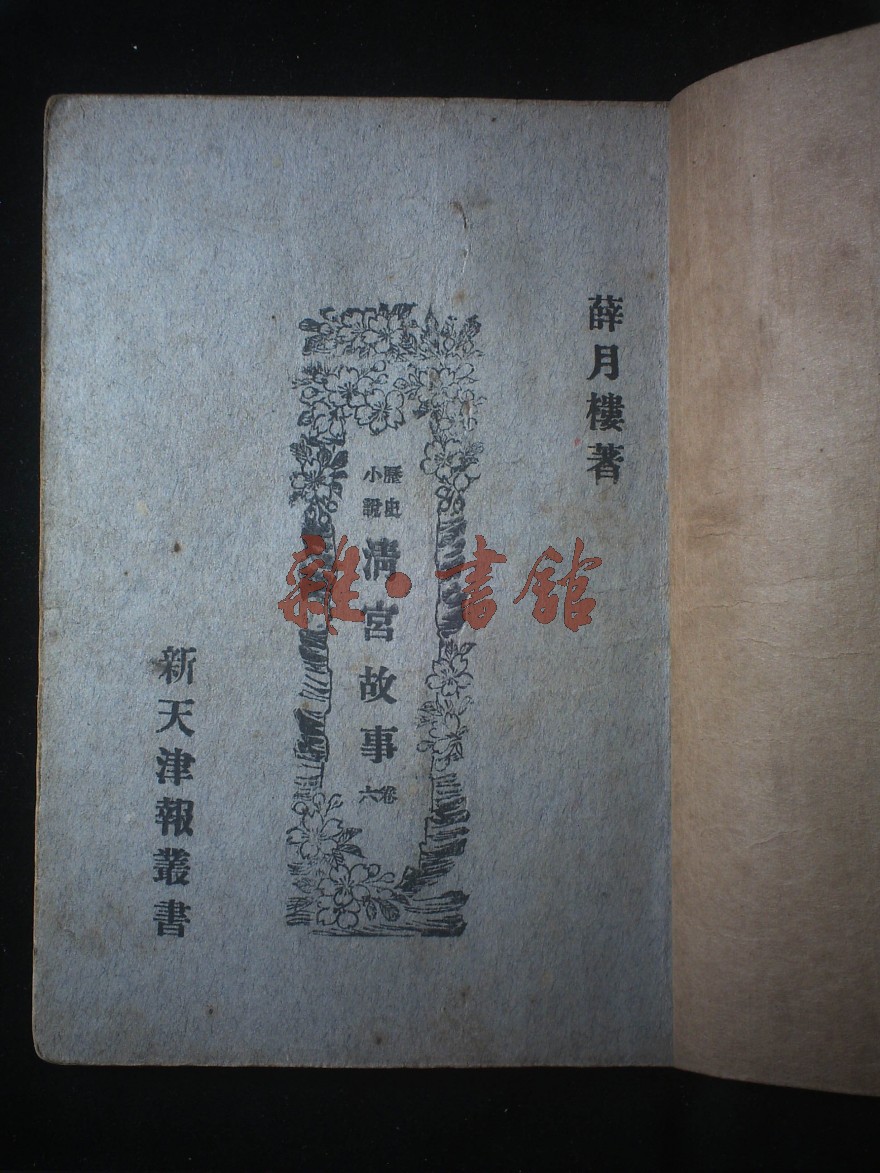 薛月樓著
歷史
小說
清宮故事
卷六
新天津報叢書
雜·書館